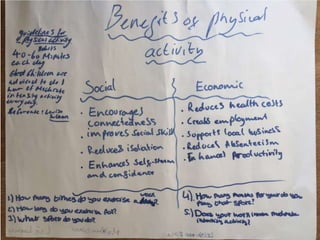 Benefits of physical
activity
guidelines for
physical activity
40-60 Minutes
each day
children are
advised to do 1
hour of Moderate
intensity activity
everyday.
Social
• Encourages
connectedness
• improves Social skill
• Reduces isolation
• Enhances self-esteem
and confidence
Economic
• Reduces health costs
• Create employment
• Supports local business
• Reduces Absenteeism
• Enhances Productivity
1) How many times do you exercise a
week
2) How long do you exercise for?
3) What sport do you do?
4) How many months per year do you
play that sport?
5) Does your work involve moderate
intensity activity?